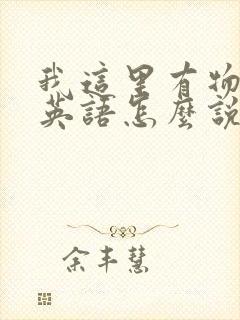 我這里有物
英語怎麼說
余丰慧